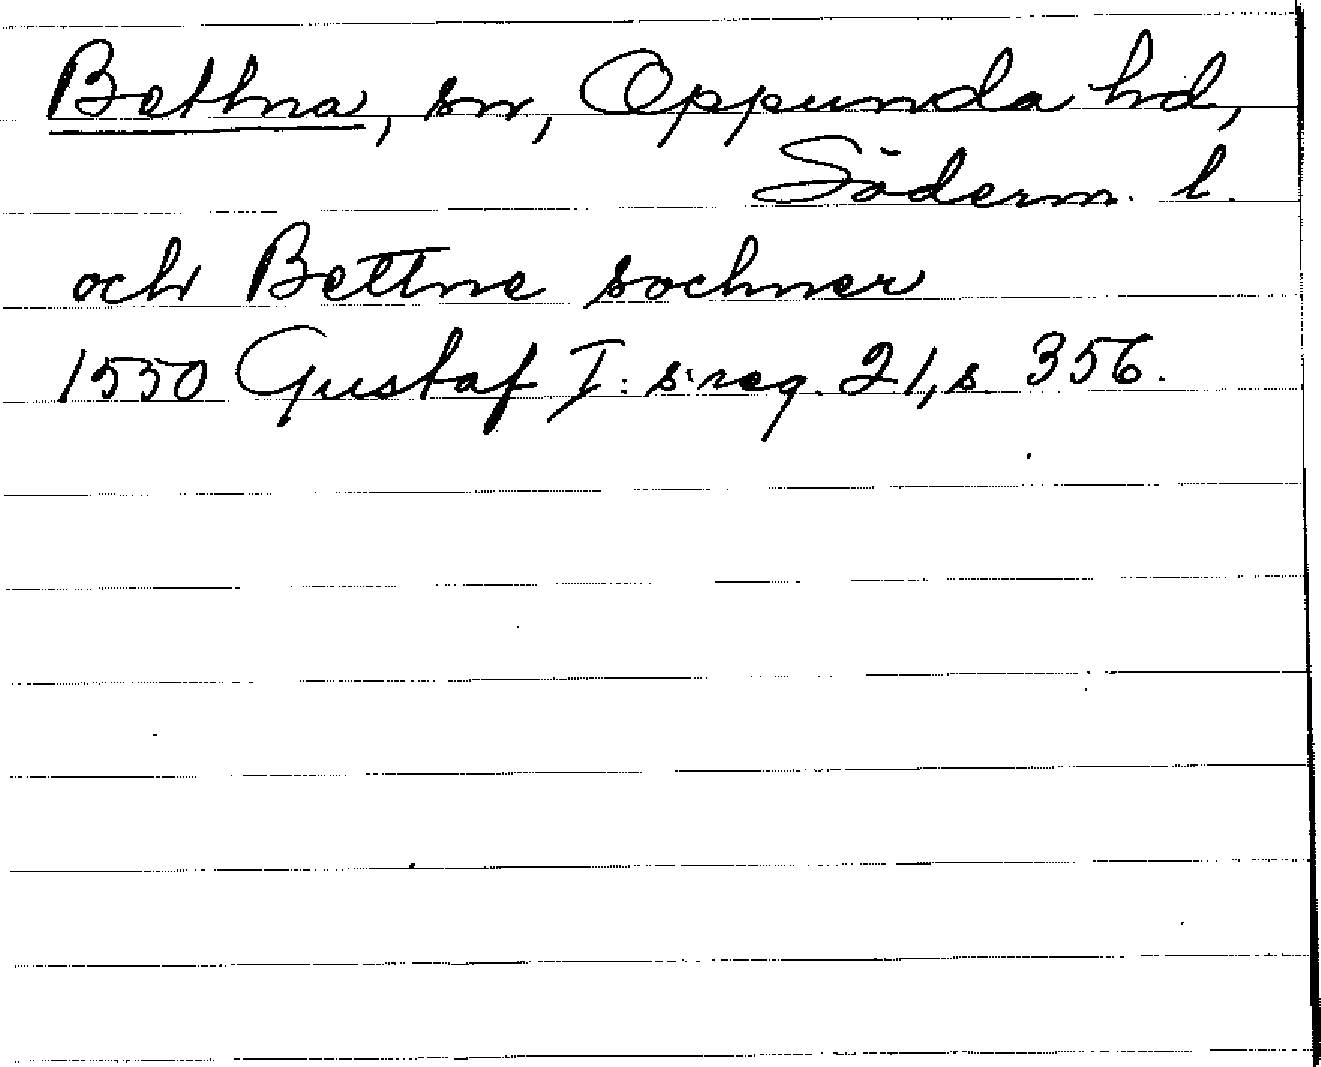 Bettna, sn, Oppunda hd,
Söderm. l.
och Bettne sochner
1550 Gustaf I: s reg. 21, s 356.